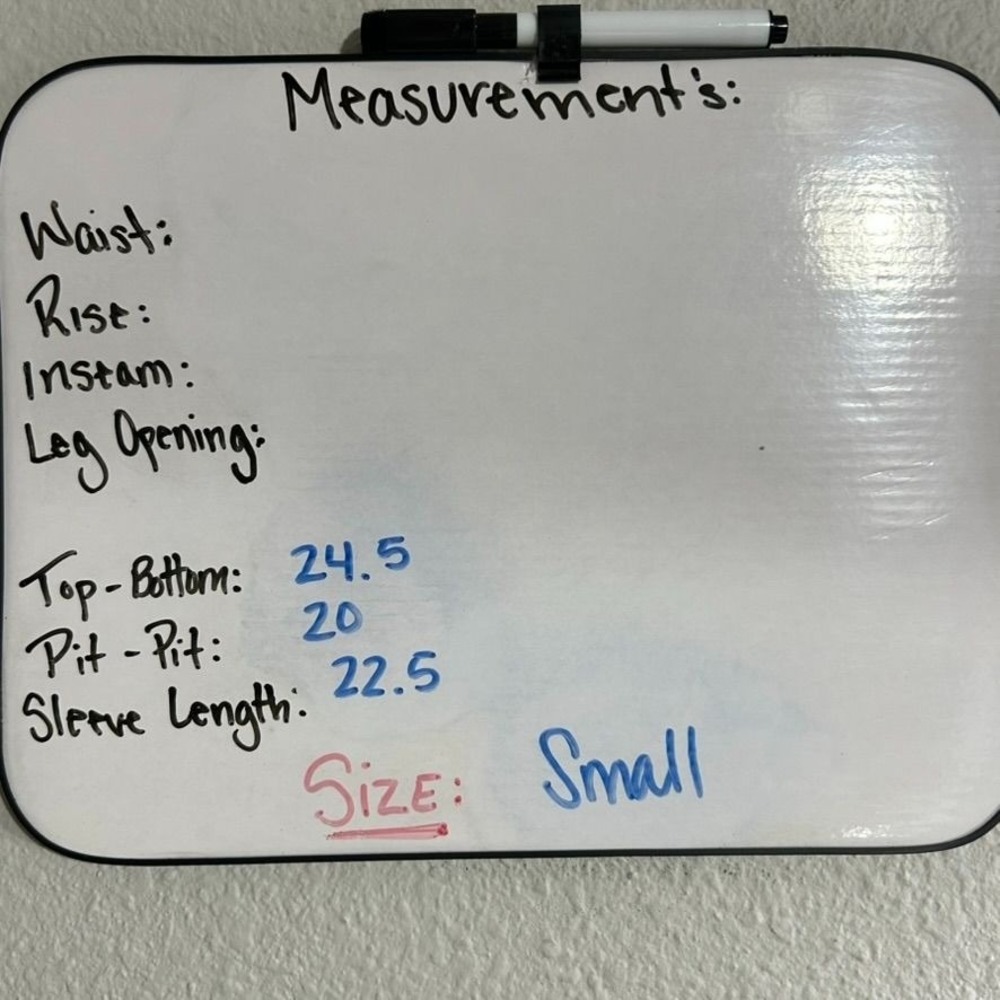 Measurement's:
Waist:
Rise:
Inseam:
Leg Opening:
Top-Bottom: 24.5
Pit-Pit: 20
Sleeve Length: 22.5
Size: Small